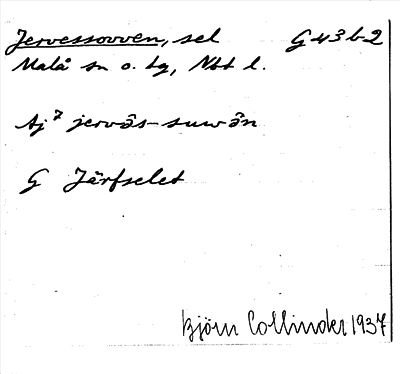 Jervessovven, sel G 43 b 2
Malå sn o. tg, Nbt l.
Aj⁷ jervȧ̂s-suwȧ̂n
G Järfselet
Björn Collinder 1937